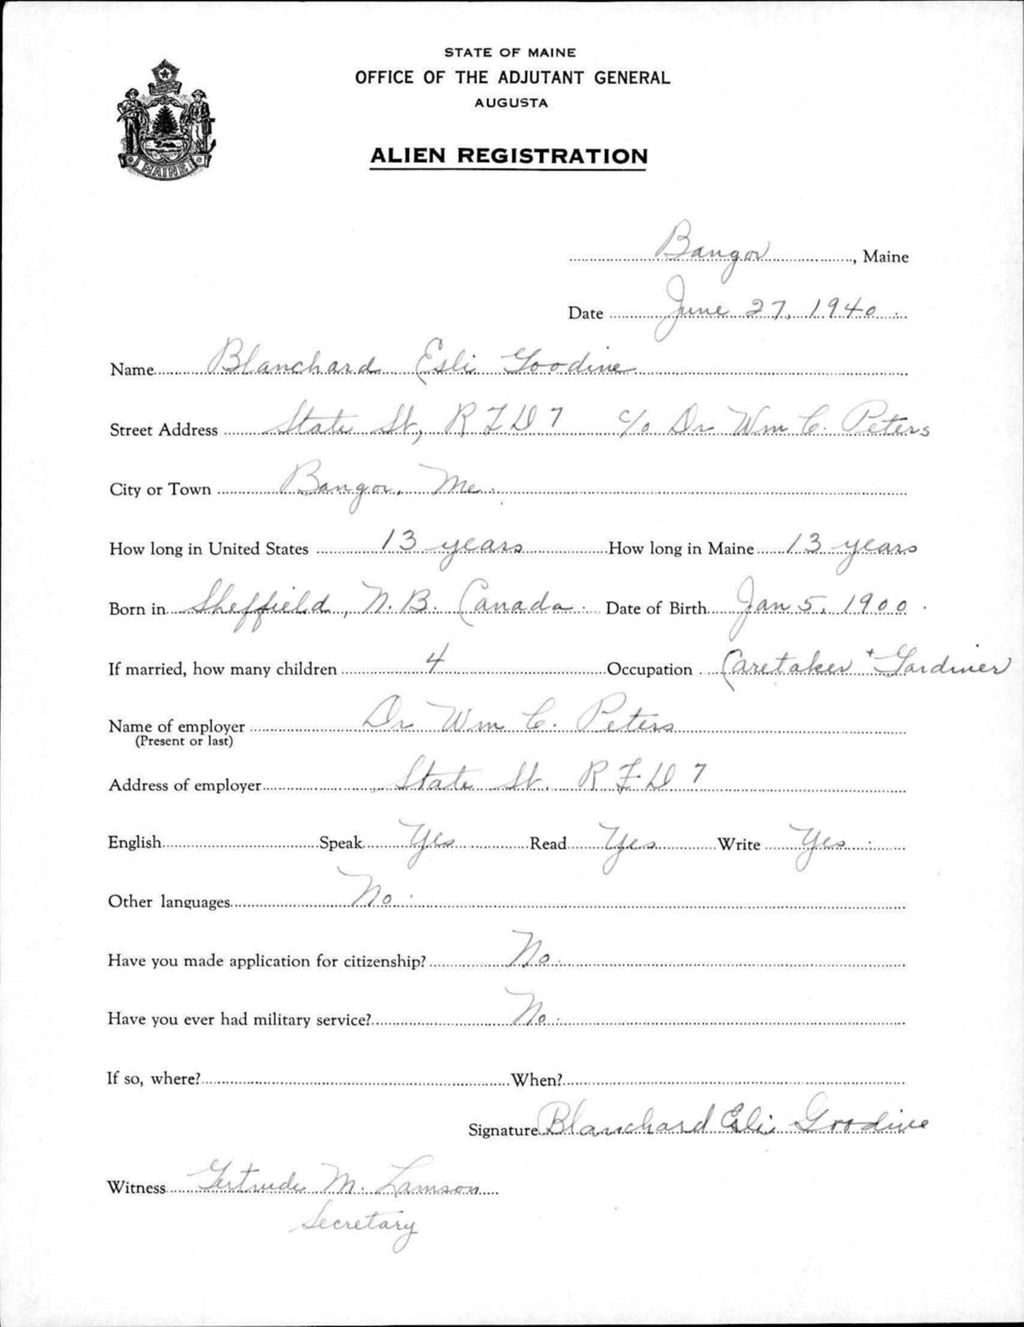 STATE OF MAINE
OFFICE OF THE ADJUTANT GENERAL
AUGUSTA
MAINE
ALIEN REGISTRATION
Bangor, Maine
Date June 27, 1940
Name Blanchard Esli Goodine
Street Address State St, R F D 7 c/o Dr Wm C. Peters
City or Town Bangor, Me.
How long in United States 13 years How long in Maine 13 years
Born in Sheffield, N. B. Canada Date of Birth Jan 5, 1900
If married, how many children 4 Occupation Caretaker + Gardiner
Name of employer Dr Wm C. Peters
(Present or last)
Address of employer State St. R F D 7
English Speak Yes Read Yes Write Yes
Other languages No
Have you made application for citizenship? No
Have you ever had military service? No
If so, where? When?
Signature Blanchard Esli Goodine
Witness Gertrude M. Lamson
Secretary